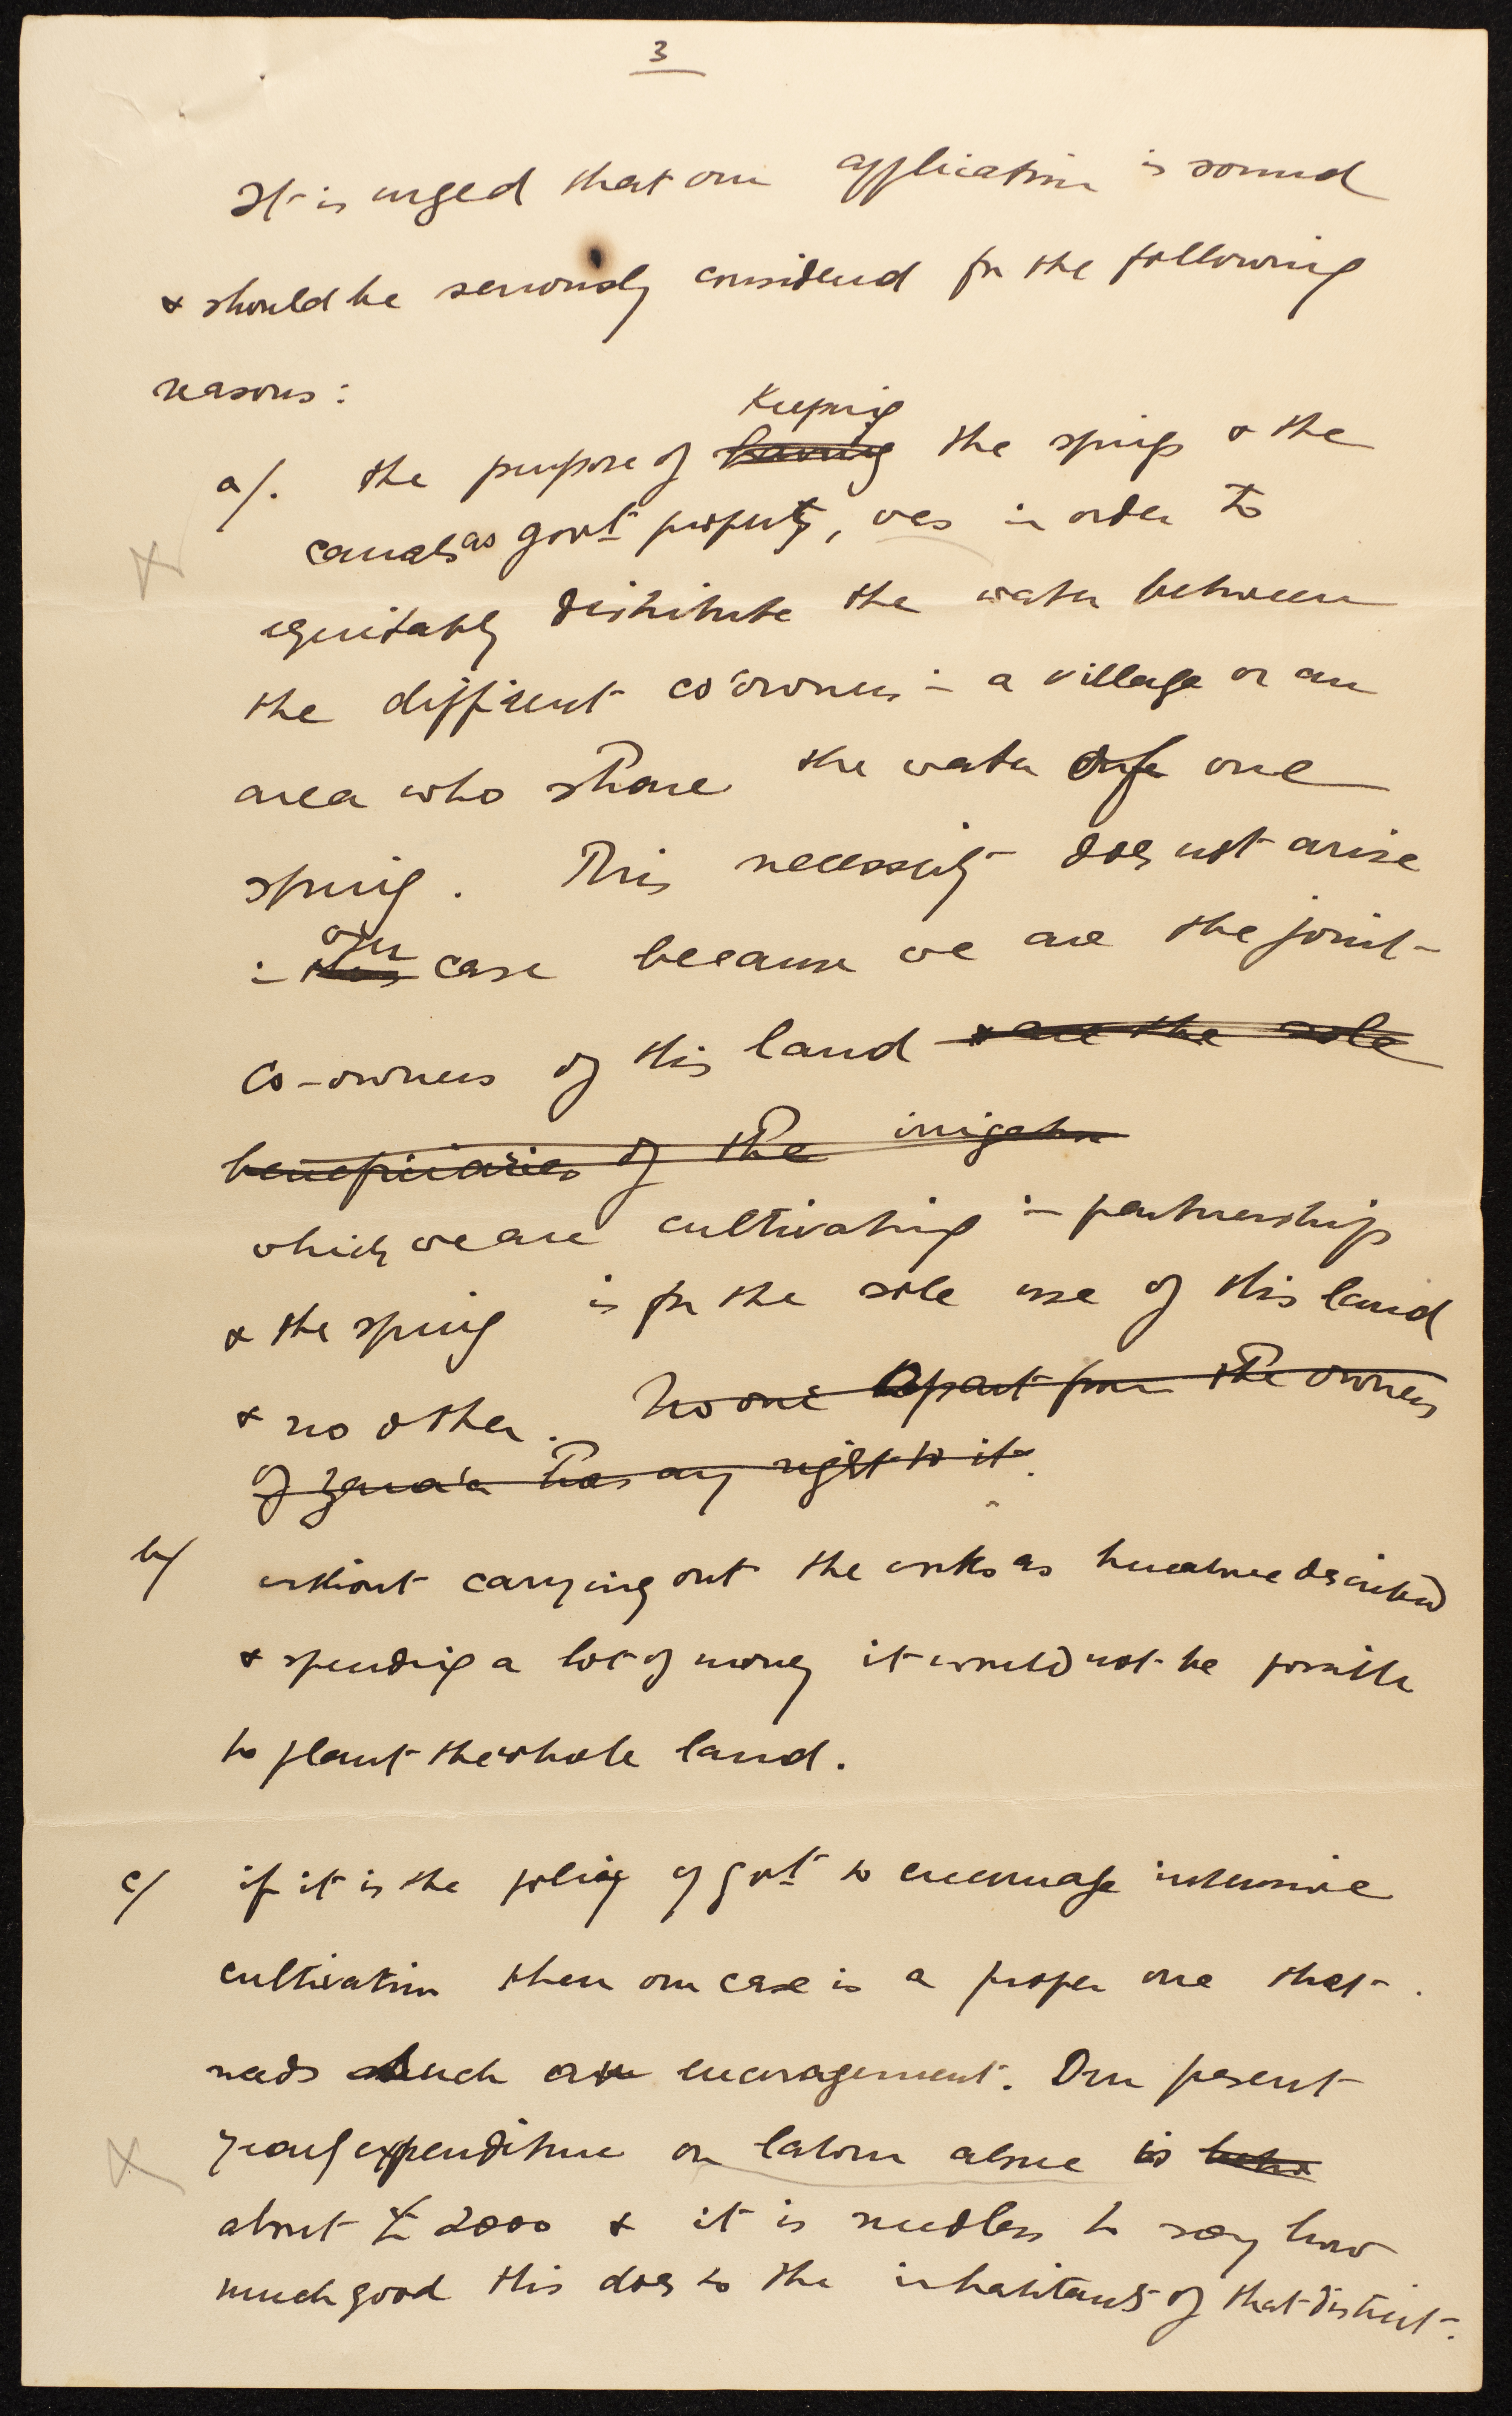 3
It is urged that our application is sound
& should be seriously considered for the following
reasons:
Keeping
a/. the purpose of having the springs & the
canals as govt property, was in order to
equitably distribute the water between
the different co'owners in a village or an
area who share the water of one
spring. This necessity does not arise
our
in this case because we are the joint-
co-owners of this land & are the sole
beneficiaries of the irrigation
which we are cultivating in partnership
& the spring is for the sole use of this land
& no other. No one apart from the owners
of Zara'a has any right to it.
b/ without carrying out the works as hereabove described
& spending a lot of money it would not be possible
to plant the whole land.
c/ if it is the policy of govt to encourage intensive
cultivation then our case is a proper one that
needs such an encouragement. Our present
yearly expenditure on labour alone is
about £ 2000 & it is needless to say how
much good this does to the inhabitants of that district.